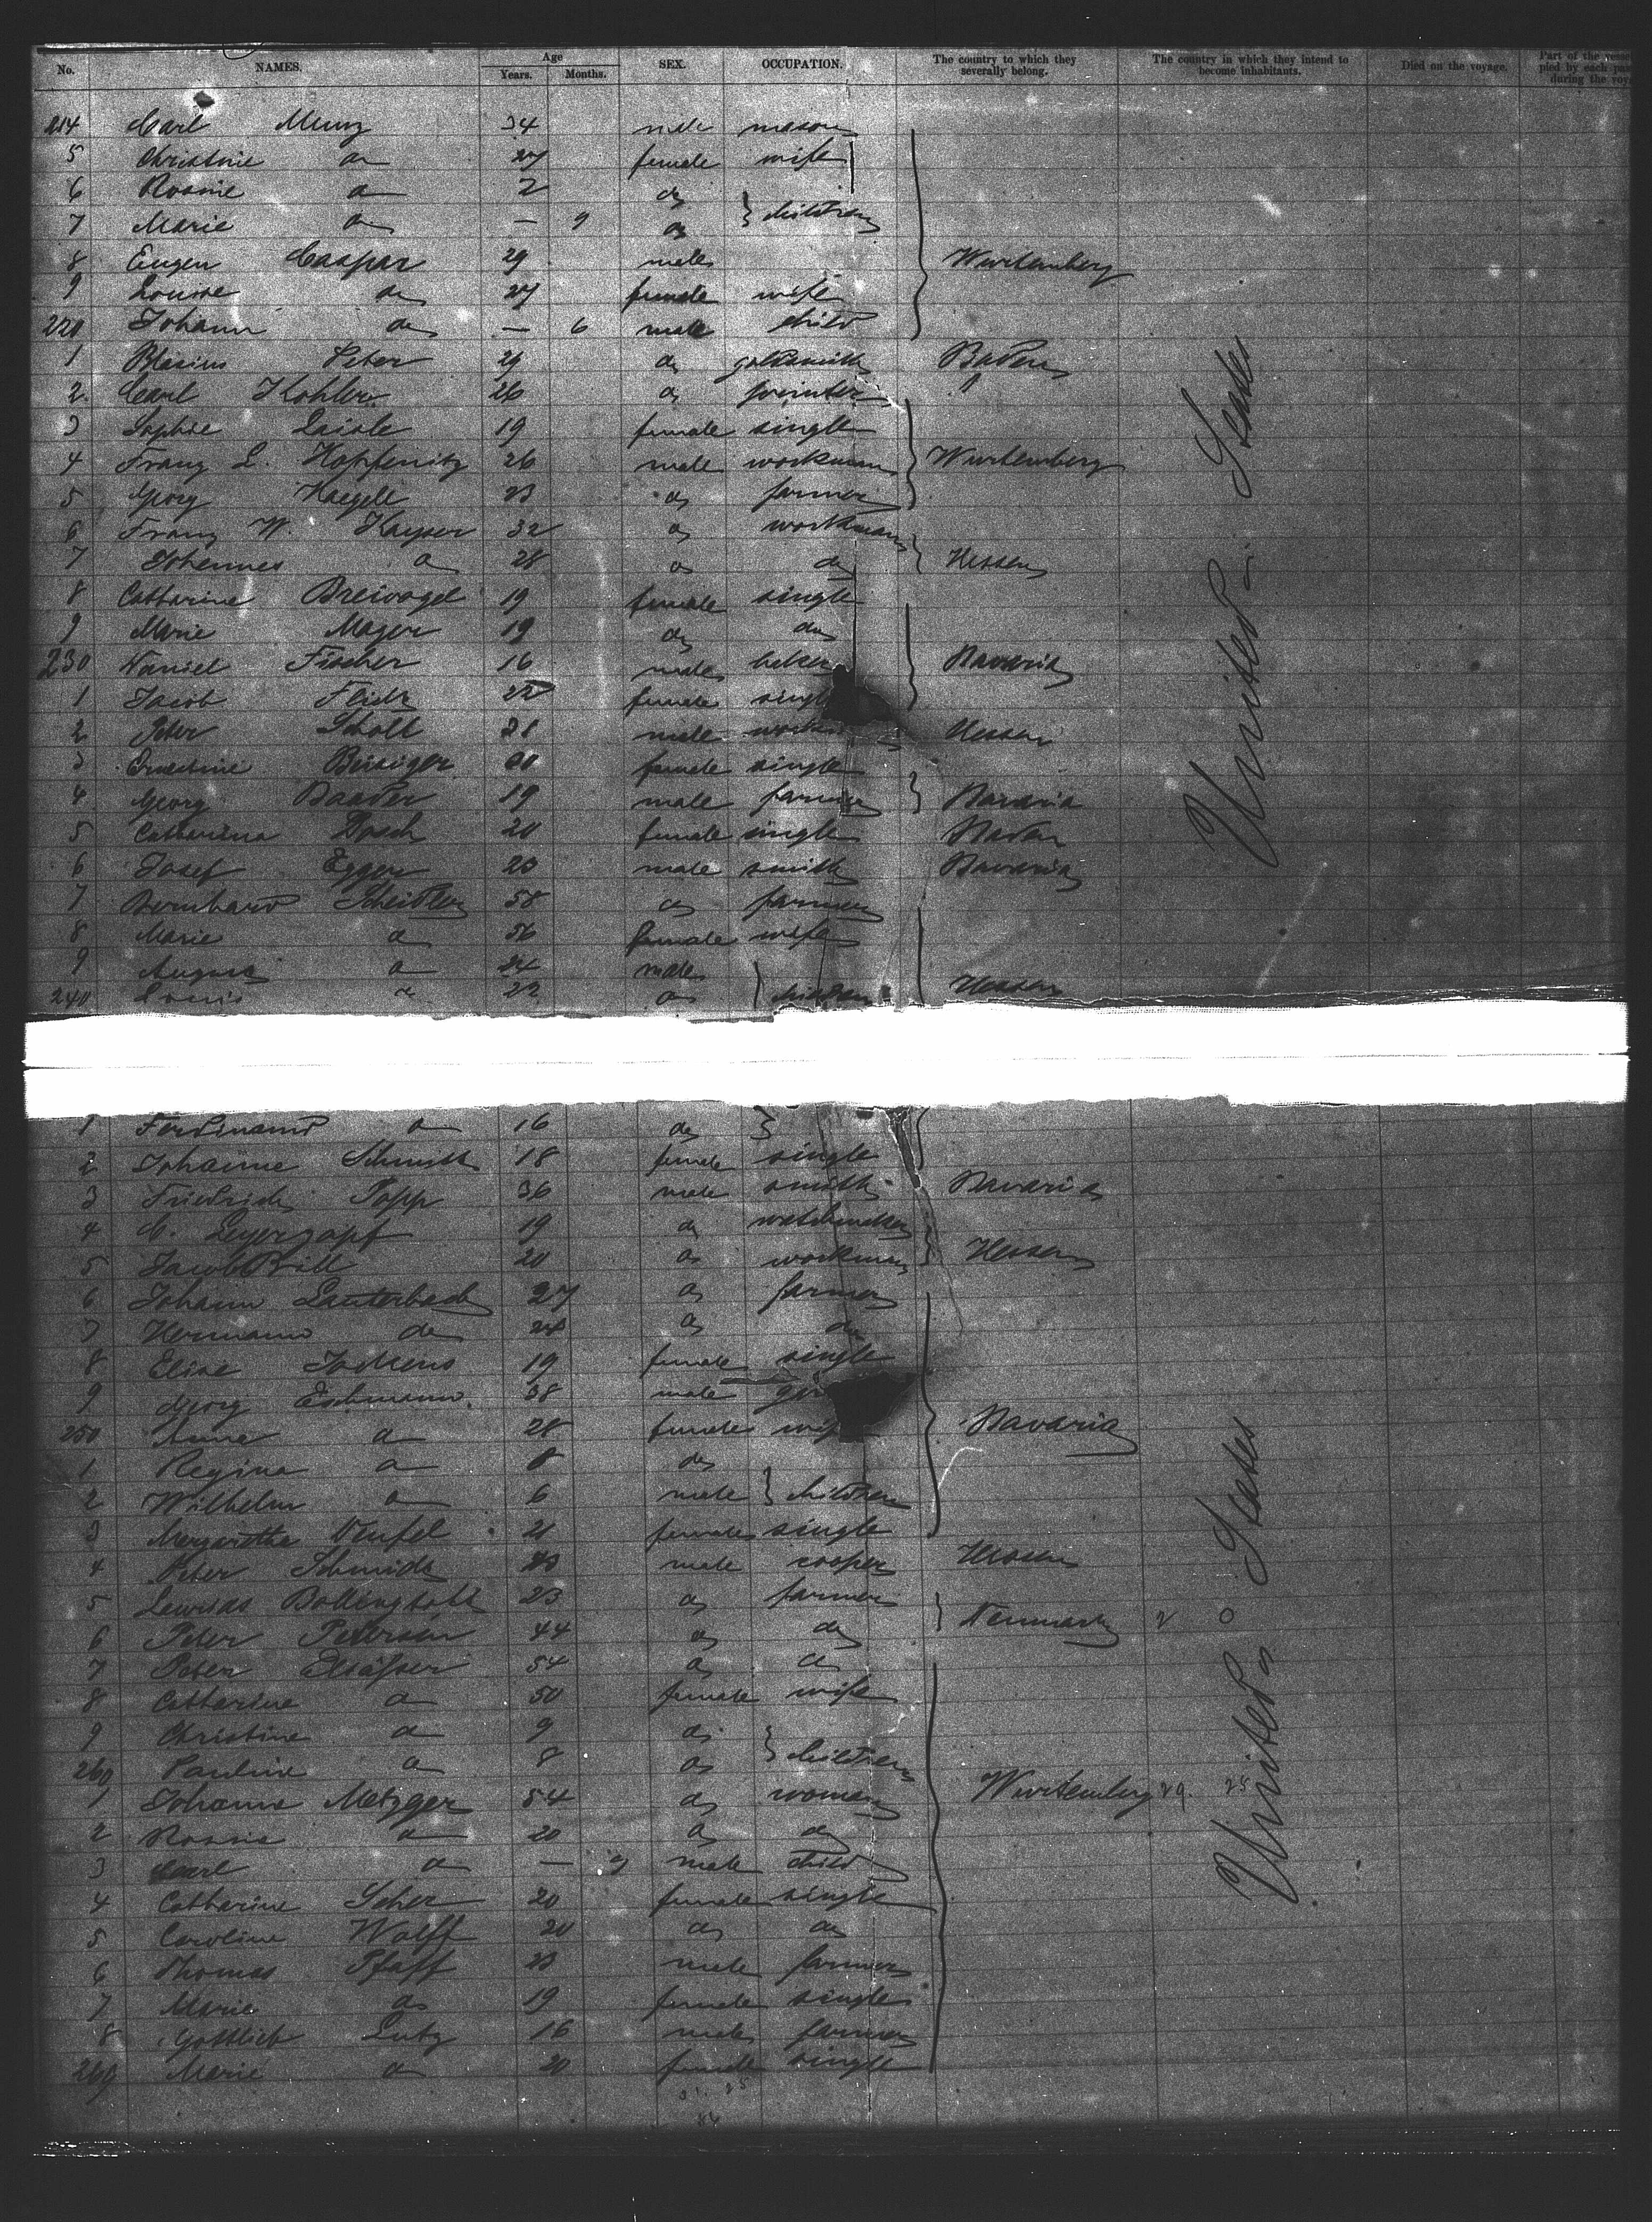 No. NAMES. Age Years. Months. SEX. OCCUPATION. The country to which they severally belong. The country in which they intend to become inhabitants. Died on the voyage. Part of the vessel pied by each pas during the voy
214 Carl Munz 34 male mason
5 Christine do 27 female wife
6 Rosine do 2 do
7 Marie do — 9 do } children
8 Eugen Caspar 29 male Wurtemberg
9 Louise do 27 female wife
220 Johann do — 6 male child
1 Blasius Peter 29 do goldsmith Baden
2 Carl Kohler 26 do
3 Sophie 19 female single
4 Franz L. Hopfenitz 26 male workman Wurtemberg
5 Georg Haegele 23 do farmer
6 Franz W. Kayser 32 do workman
7 Johannes do 28 do do Hessen
8 Catharine Breivogel 19 female single
9 Marie Mager 19 do do
230 Daniel Fischer 16 male beker Bavaria
1 Jacob 22 female single
2 Peter Scholl 21 male Hessen
3 Ernestine 20 female single
4 Georg Baader 19 male farmer Bavaria
5 Catharina Dosch 20 female single Baden
6 Josef Egger 23 male smith Bavaria
7 Bernhard Scheidler 58 do farmer
8 Marie do 56 female wife
9 August do 24 male
240 Louis do 22 do } children Hessen
United States
1 Ferdinand do 16 do }
2 Johanne Schmith 18 female single
3 Friedrich Popp 36 male smith Bavaria
4 C. Leyerzapf 19 do watchmaker
5 Jacob Bill 20 do workman Hessen
6 Johann Lauterbach 27 do farmer
7 Hermann do 24 do do
8 Elise Jockens 19 female single
9 Georg Eschmann 38 male
250 Anna do 28 female wife Bavaria
1 Regina do 8 do
2 Wilhelm do 6 male } children
3 Margaretha Teufel 21 female single
4 Peter Schmidt male cooper Hessen
5 Bollingtoft 23 do farmer
6 Peter Petersen 44 do do Denmark 2 0
7 Peter Elsässer 54 do do
8 Catharine do 50 female wife
9 Christine do 9 do
260 Pauline do 8 do } children
1 Johanna Metzger 54 do woman Wurtemberg 29. 25
2 Rosine do 20 do do
3 Carl do — 9 male child
4 Catharine Scher 20 female single
5 Caroline Wolff 20 do do
6 Thomas Pfaff 23 male farmer
7 Marie do 19 female single
8 Gottlieb Lutz 16 male farmer
269 Marie do 20 female single
United States